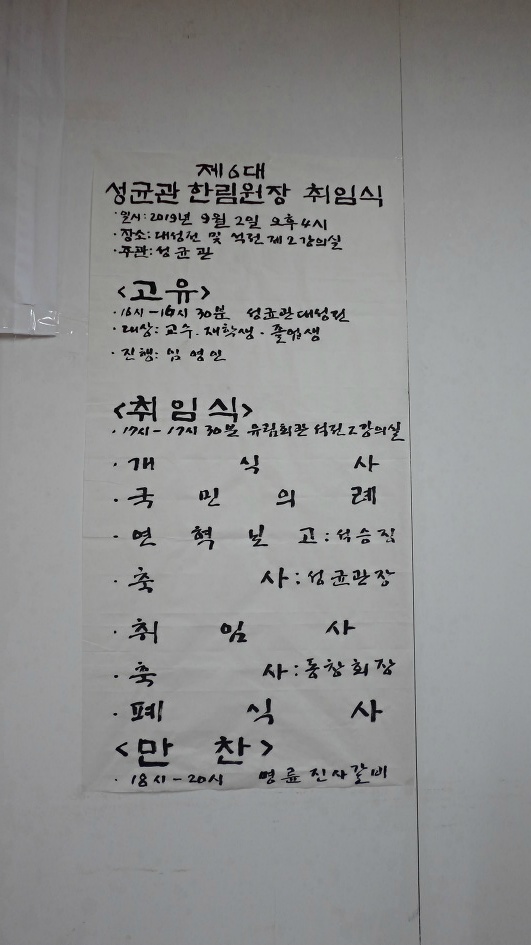 제6대
성균관 한림원장 취임식
·일시: 2019년 9월 2일 오후4시
·장소: 대성전 및 석전 제2강의실
·주관: 성균관
<고유>
·16시-16시 30분 성균관대성전
·대상: 교수. 재학생·졸업생
·진행: 임영인
<취임식>
·17시-17시 30분 유림회관 석전2강의실
·개 식 사
·국 민 의 례
·연 혁 보 고: 석승징
·축 사: 성균관장
·취 임 사
·축 사: 동창회장
·폐 식 사
<만 찬>
·18시-20시 명륜진사갈비